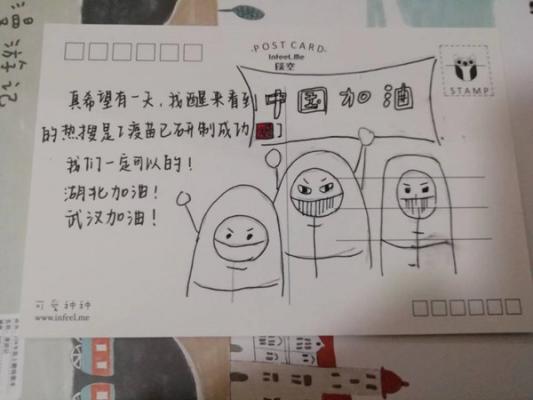 ·POST CARD·
Infeel.Me
STAMP
中国加油
真希望有一天，我醒来看到
的热搜是「疫苗已研制成功
我们一定可以的！
湖北加油！
武汉加油！
www.infeel.me
游记